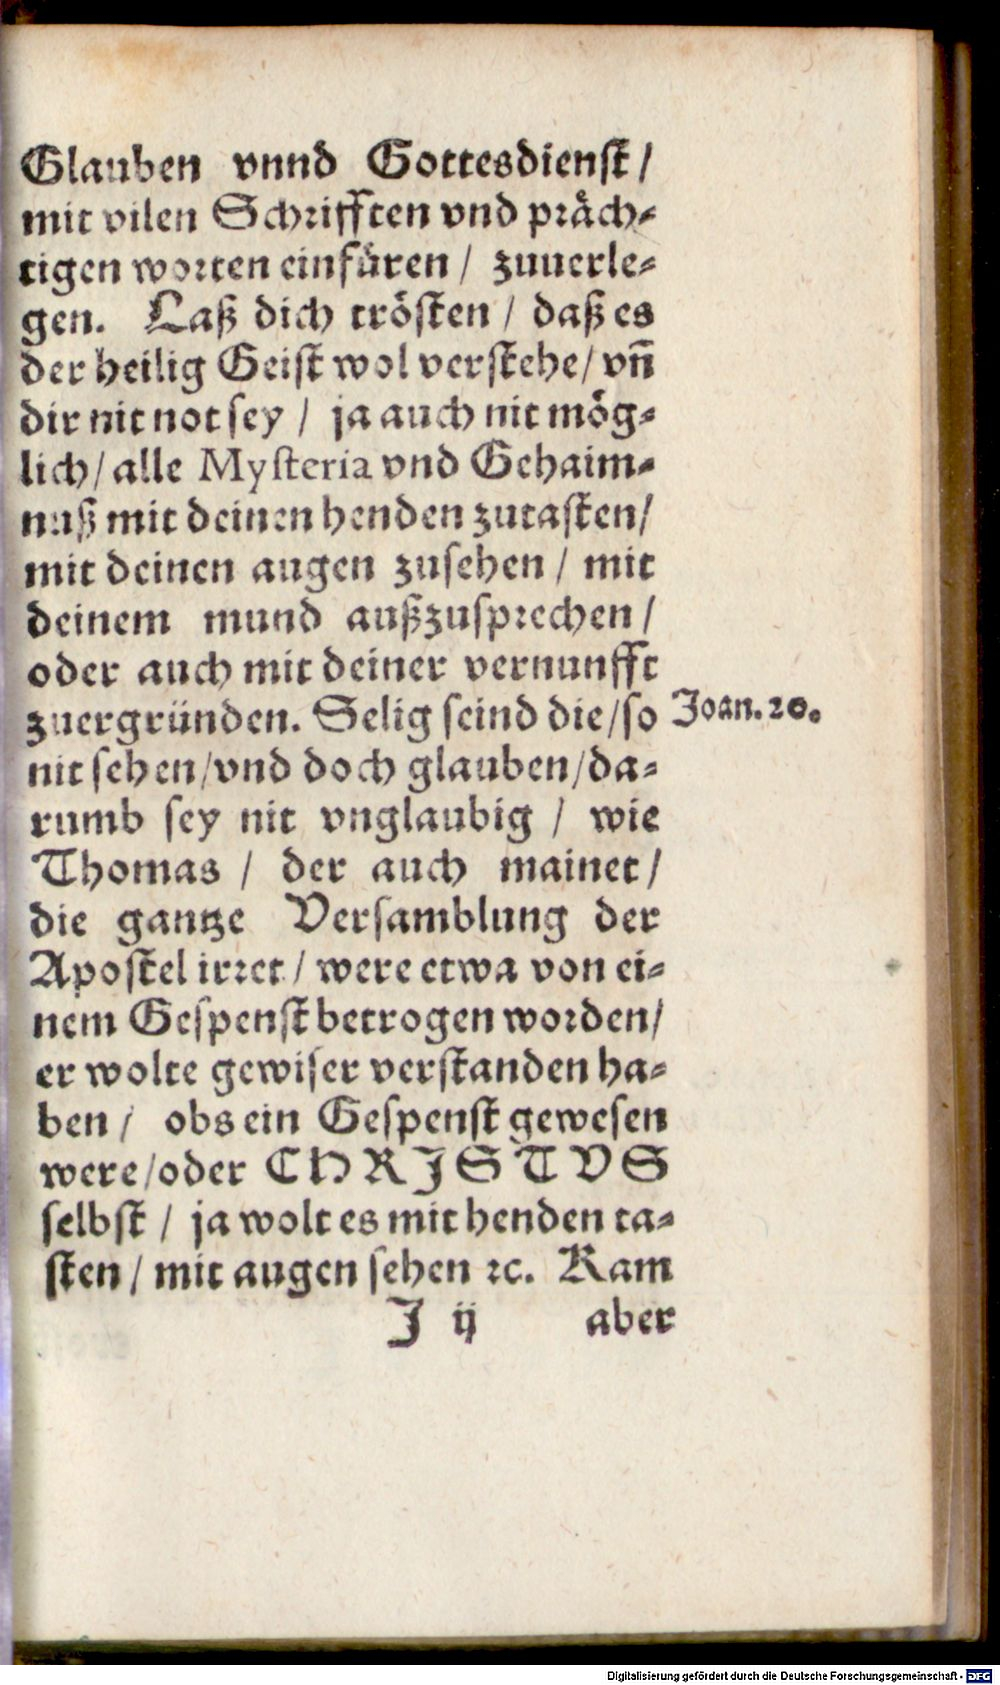 Glauben vnnd Gottesdienst /
mit vilen Schrifften vnd präch⸗
tigen worten einfüren / zuuerle⸗
gen. Laß dich trösten / daß es
der heilig Geist wol verstehe / vñ
dir nit not sey / ja auch nit mög⸗
lich / alle Mysteria vnd Gehaim⸗
nuß mit deinen henden zutasten /
mit deinen augen zusehen / mit
deinem mund außzusprechen /
oder auch mit deiner vernunfft
zuergründen. Selig seind die / so
Joan. 20.
nit sehen / vnd doch glauben / da⸗
rumb sey nit vnglaubig / wie
Thomas / der auch mainet /
die gantze Versamblung der
Apostel irret / were etwa von ei⸗
nem Gespenst betrogen worden /
er wolte gewiser verstanden ha⸗
ben / obs ein Gespenst gewesen
were / oder CHRISTVS
selbst / ja wolt es mit henden ta⸗
sten / mit augen sehen ꝛc. Kam
J ij aber
Digitalisierung gefördert durch die Deutsche Forschungsgemeinschaft - DFG